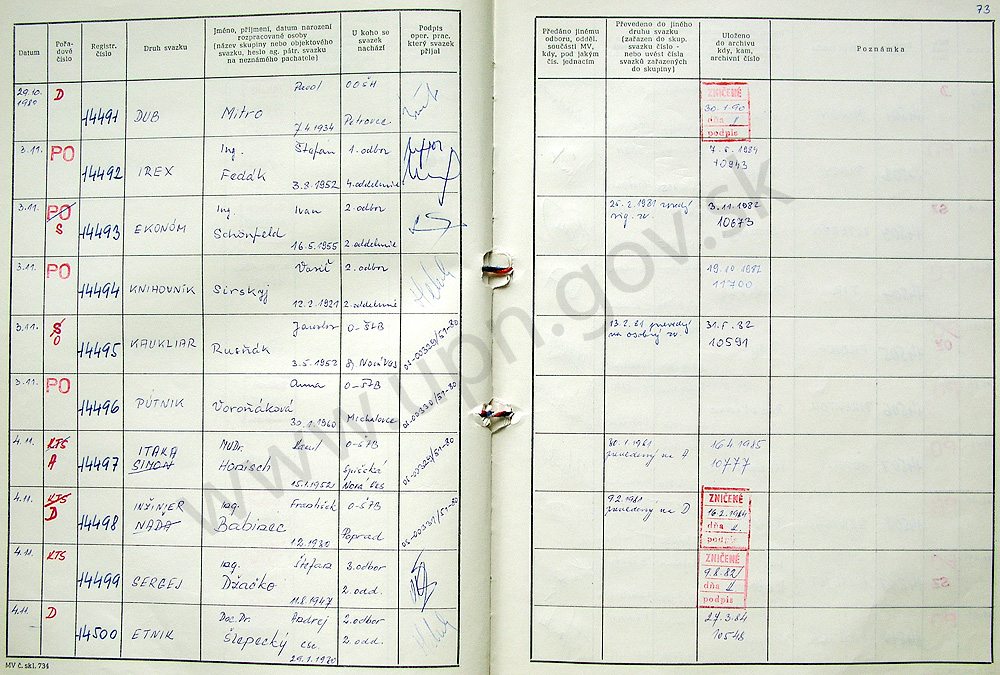 73
Datum
Pořa-
dové
číslo
Registr.
číslo
Druh svazku
Jméno, příjmení, datum narození
rozpracované osoby
(název skupiny nebo objektového
svazku, heslo ag. pátr. svazku
na neznámého pachatele)
U koho se
svazek
nachází
Podpis
oper. prac.
který svazek
přijal
Předáno jinému
odboru, odděl.
součásti MV,
kdy, pod jakým
čís. jednacím
Převedeno do jiného
druhu svazku
(zařazen do skup.
svazku číslo -
nebo uvést čísla
svazků zařazených
do skupiny)
Uloženo
do archivu
kdy, kam,
archivní číslo
Poznámka
29.10. D Pavol OOŠH
1980
14491 DUB Mitro
7.4.1934 Petrovce
ZNIČENÉ
30.1.90
dňa
podpis
3.11. PO Ing. Štefan 1. odbor
14492 IREX Fedák
3.8.1952 4. oddelenie
7.5.1984
10943
3.11. PO Ing. Ivan 2. odbor
S 14493 EKONÓM Schönfeld
16.5.1955 2. oddelenie
25.2.1981
3.11.1982
10673
3.11. PO Vasiľ 2. odbor
14494 KNIHOVNÍK Sirskyj
12.2.1921 2. oddelenie
19.10.1987
11700
3.11. S Jaroslav O-ŠTB
O 14495 KAUKLIAR Rusňák
3.5.1952 Nová Ves
OS-00329/51-80
13.2.81 prevedený
na osobný zv.
31.5.82
10591
3.11. PO Anna O-ŠTB
14496 PÚTNIK Voroňáková
30.1.1960 Michalovce
OS-00330/51-80
4.11. KTS MUDr. Karol O-ŠTB
A 14497 ITAKA
SIMON Horisch
15.1.1952 Spišská
Nová Ves
OS-00329/51-80
30.1.1981
prevedený na A
16.4.1985
10777
4.11. KTS Ing. František O-ŠTB
D 14498 INŽINIER
NAĎA Babinec
1.2.1930 Poprad
OS-00331/51-80
9.2.1981
prevedený na D
ZNIČENÉ
16.2.1984
dňa
podpis
4.11. KTS Ing. Štefan 3. odbor
14499 SERGEJ Džačko
11.8.1947 2. odd.
ZNIČENÉ
9.8.82
dňa
podpis
4.11. D Doc. Dr. Andrej 2. odbor
14500 ETNIK Šlepecký CSc.
29.1.1930 2. odd.
27.3.84
10548
MV č. skl. 734
www.upn.gov.sk